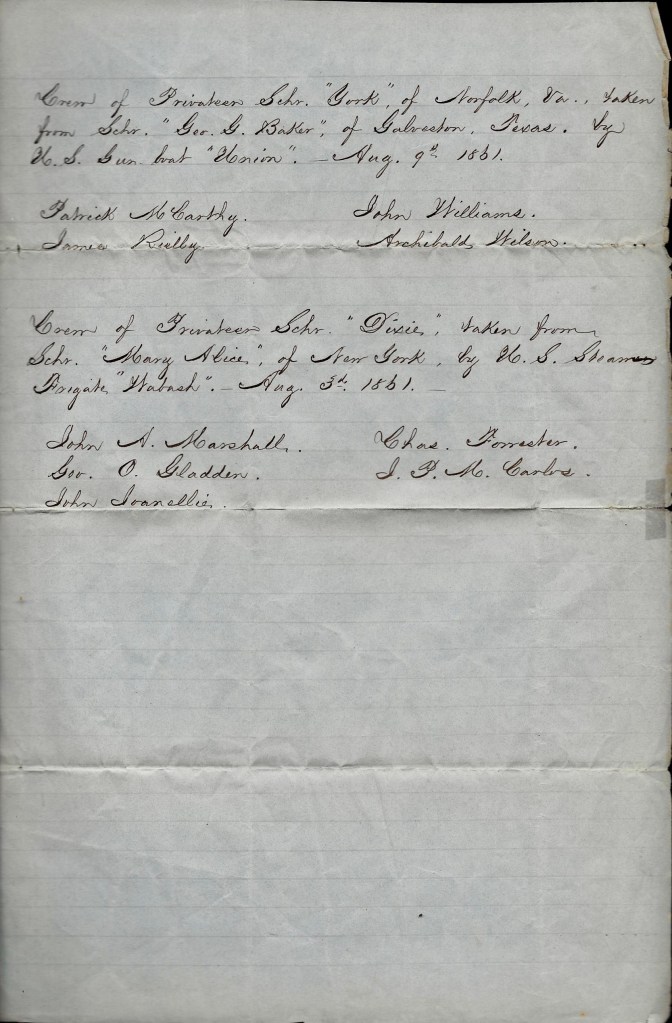 Crew of Privateer Schr. "York", of Norfolk, Va., taken
from Schr. "Geo. G. Baker", of Galveston, Texas. by
U. S. Gun boat "Union". — Aug. 9th 1861.
Patrick McCarthy. John Williams.
James Rielly. Archibald Wilson.
Crew of Privateer Schr. "Dixie", taken from
Schr. "Mary Alice", of New York, by U. S. Steam
Frigate "Wabash". — Aug. 3d. 1861. —
John A. Marshall. Chas. Forrester.
Geo. O. Gladden. J. P. M. Carlos.
John Joanellie.